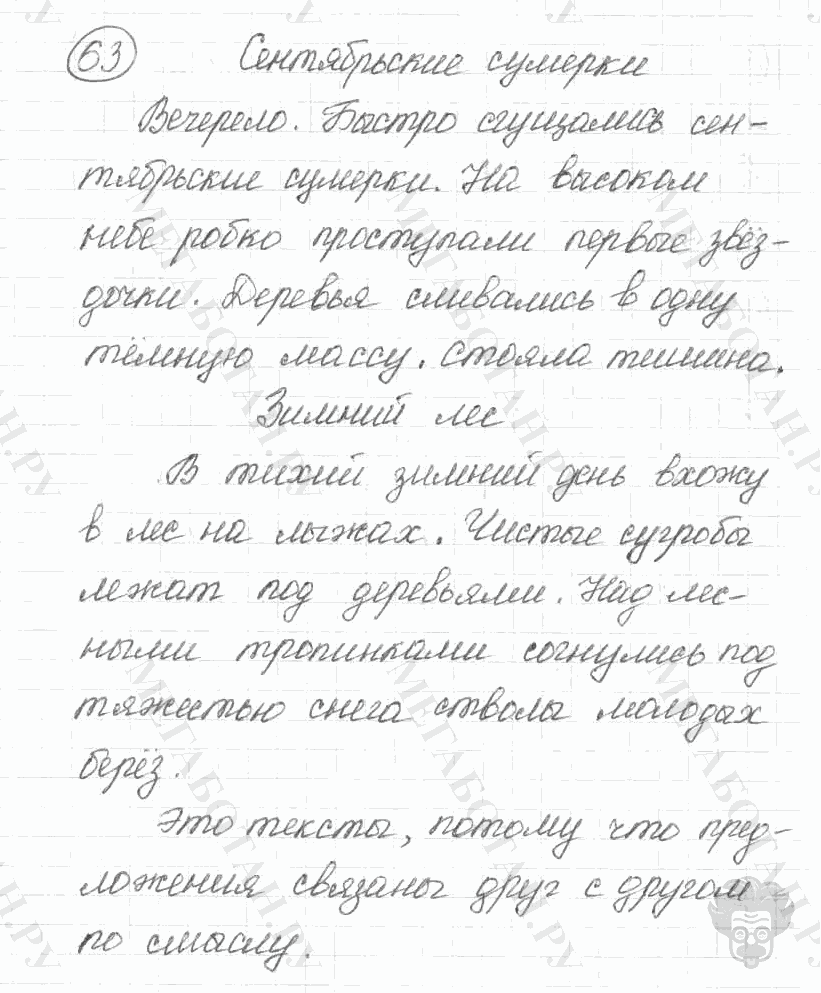 63 Сентябрьские сумерки
Вечерело. Быстро сгущались сен-
тябрьские сумерки. На высоком
небе робко проступали первые звёз-
дочки. Деревья сливались в одну
тёмную массу. Стояла тишина.
Зимний лес
В тихий зимний день вхожу
в лес на лыжах. Чистые сугробы
лежат под деревьями. Над лес-
ными тропинками согнулись под
тяжестью снега стволы молодых
берёз.
Это тексты, потому что пред-
ложения связаны друг с другом
по смыслу.
МЕГАБОТАН.РУ